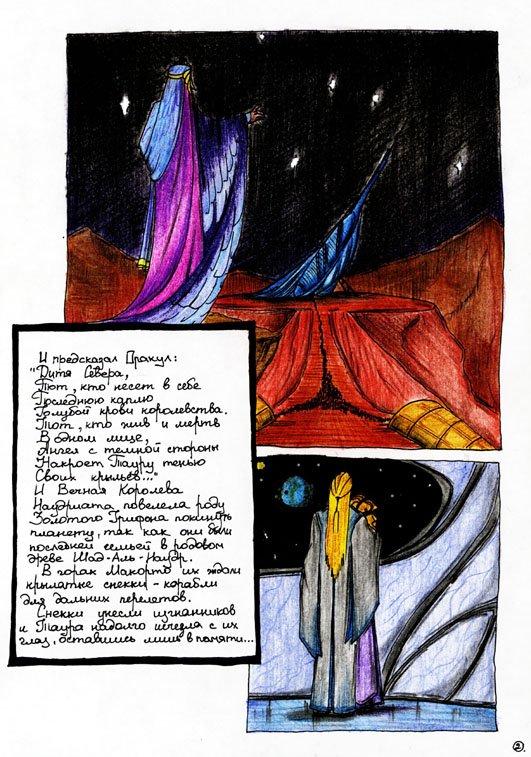 И предсказал Оракул:
"Дитя Севера,
Тот, кто несет в себе
Последнюю каплю
Голубой крови королевства.
Тот, кто жив и мертв
В одном лице,
Ангел с темной стороны
Накроет Тауру тенью
Своих крыльев..."
И Вечная Королева
повелела роду
Золотого Грифона покинуть
планету, так как они были
последней семьей в родовом
древе
В горах Макорто их ждали
крылатые снекки - корабли
для дальних перелетов.
Снекки унесли изгнанников
и Таура надолго исчезла с их
глаз, оставшись лишь в памяти...
2.